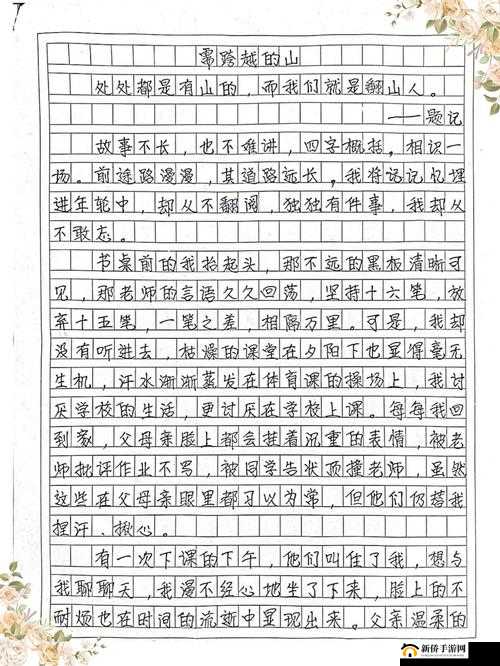 需跨越的山
处处都是有山的，而我们就是翻山人。
——题记
故事不长，也不难讲，四字概括。相识一
场。前途路漫漫，其道路远长。我将记忆埋
进年轮中，却从不翻阅，独独有件事，我却从
不敢忘。
书桌前的我抬起头，那不远的黑板清晰可
见，那老师的言语久久回荡，坚持十六笔，放
弃十五笔，一笔之差，相隔万里。可是，我却
没有听进去，枯燥的课堂在夕阳下也显得毫无
生机，汗水渐渐蒸发在体育课的操场上，我讨
厌学校的生活，更讨厌在学校上课。每每我回
到家，父母亲脸上都会挂着沉重的表情，被老
师批评作业不写，被同学告状顶撞老师，虽然
这些在父母亲眼里都习以为常，但他们仍替我
捏汗、揪心。
有一次下课的下午，他们叫住了我，想与
我聊聊天，我漫不经心地坐了下来，脸上的不
耐烦也在时间的流逝中显现出来。父亲温柔的
新侨手游网